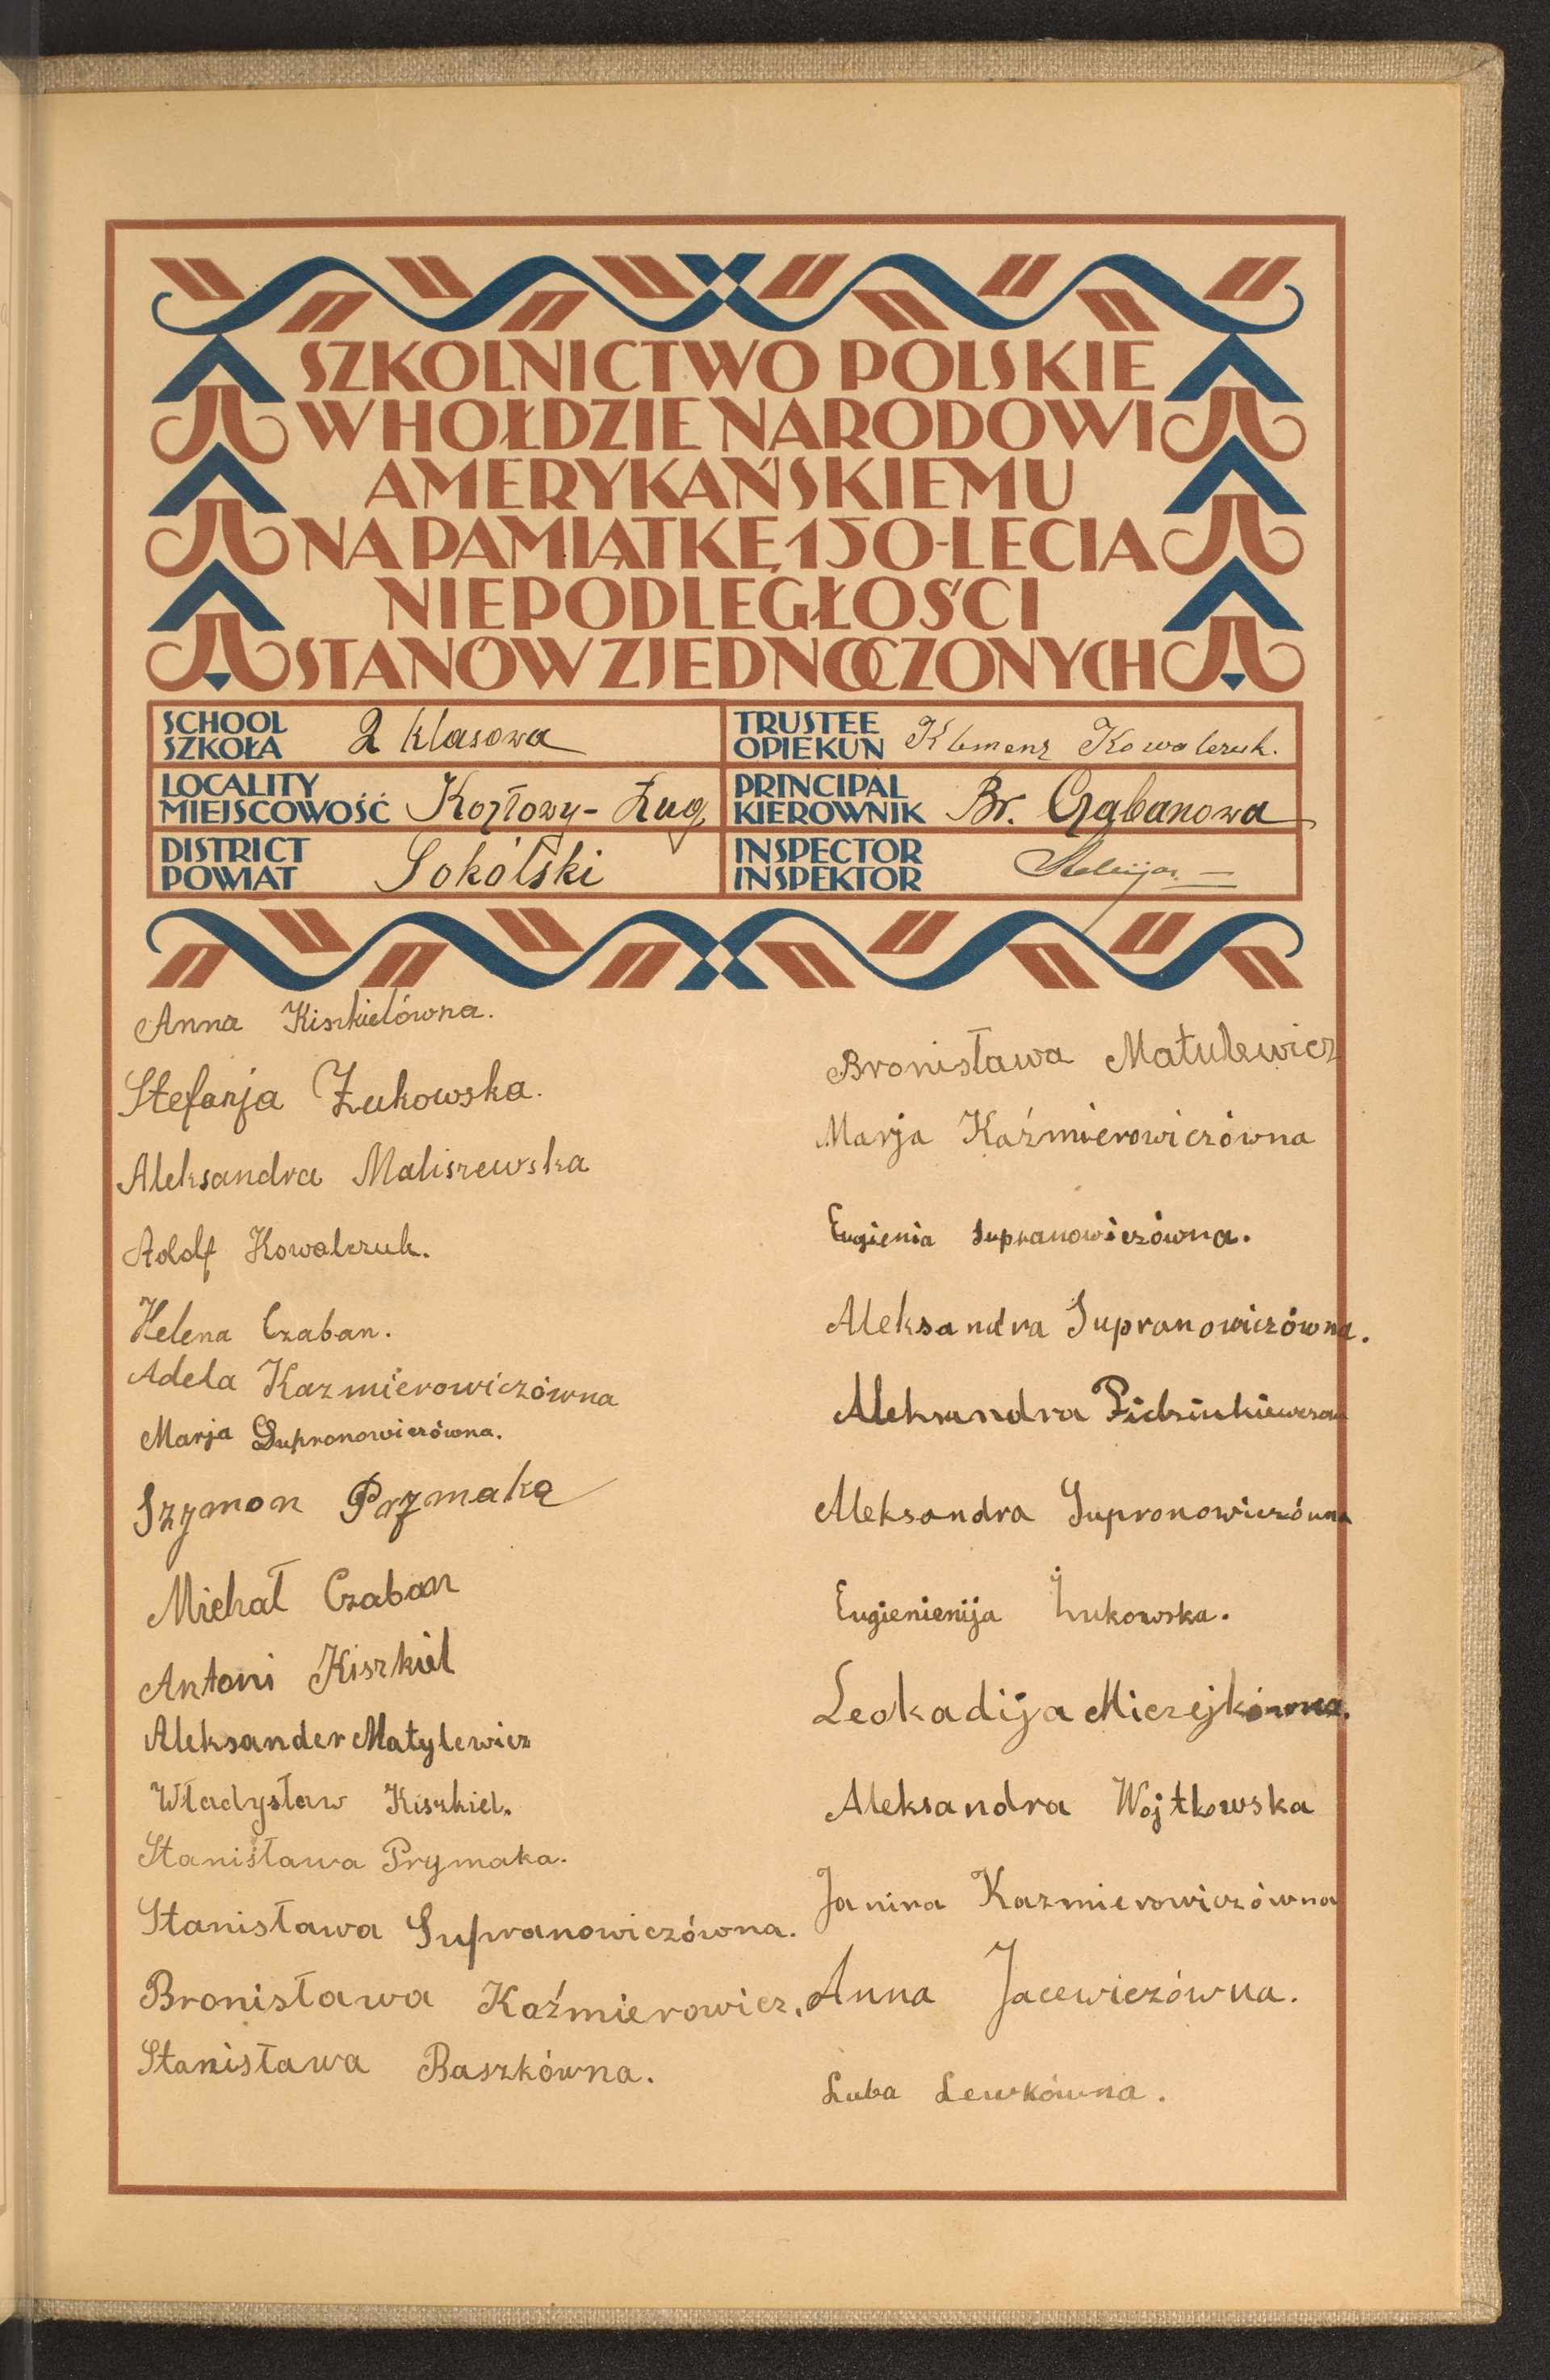 SZKOLNICTWO POLSKIE
W HOŁDZIE NARODOWI
AMERYKAŃSKIEMU
NA PAMIĄTKĘ 150-LECIA
NIEPODLEGŁOŚCI
STANÓW ZJEDNOCZONYCH
SCHOOL
SZKOŁA 2 klasowa
TRUSTEE
OPIEKUN Klemens Kowalczuk.
LOCALITY
MIEJSCOWOŚĆ Kozłowy-Ług
PRINCIPAL
KIEROWNIK Br. Czabanowa
DISTRICT
POWIAT Sokólski
INSPECTOR
INSPEKTOR
Anna Kiszkielówna.
Stefanja Żukowska.
Aleksandra Maliszewska
Adolf Kowalczuk.
Helena Czaban.
Adela Kazmierowiczówna
Marja Supronowiczówna.
Szymon Prymaka
Michał Czaban
Antoni Kiszkiel
Aleksander Matylewicz
Władysław Kiszkiel.
Stanisława Prymaka.
Stanisława Supranowiczówna.
Bronisława Kaźmierowicz.
Stanisława Baszkówna.
Bronisława Matulewicz
Marja Kaźmierowiczówna
Eugienia Supranowiczówna.
Aleksandra Supranowiczówna.
Aleksandra
Aleksandra Supronowiczówna
Eugienienija Żukowska.
Leokadija Miczejkówna.
Aleksandra Wojtkowska
Janina Kazmierowiczówna
Anna Jacewiczówna.
Luba Lewkówna.